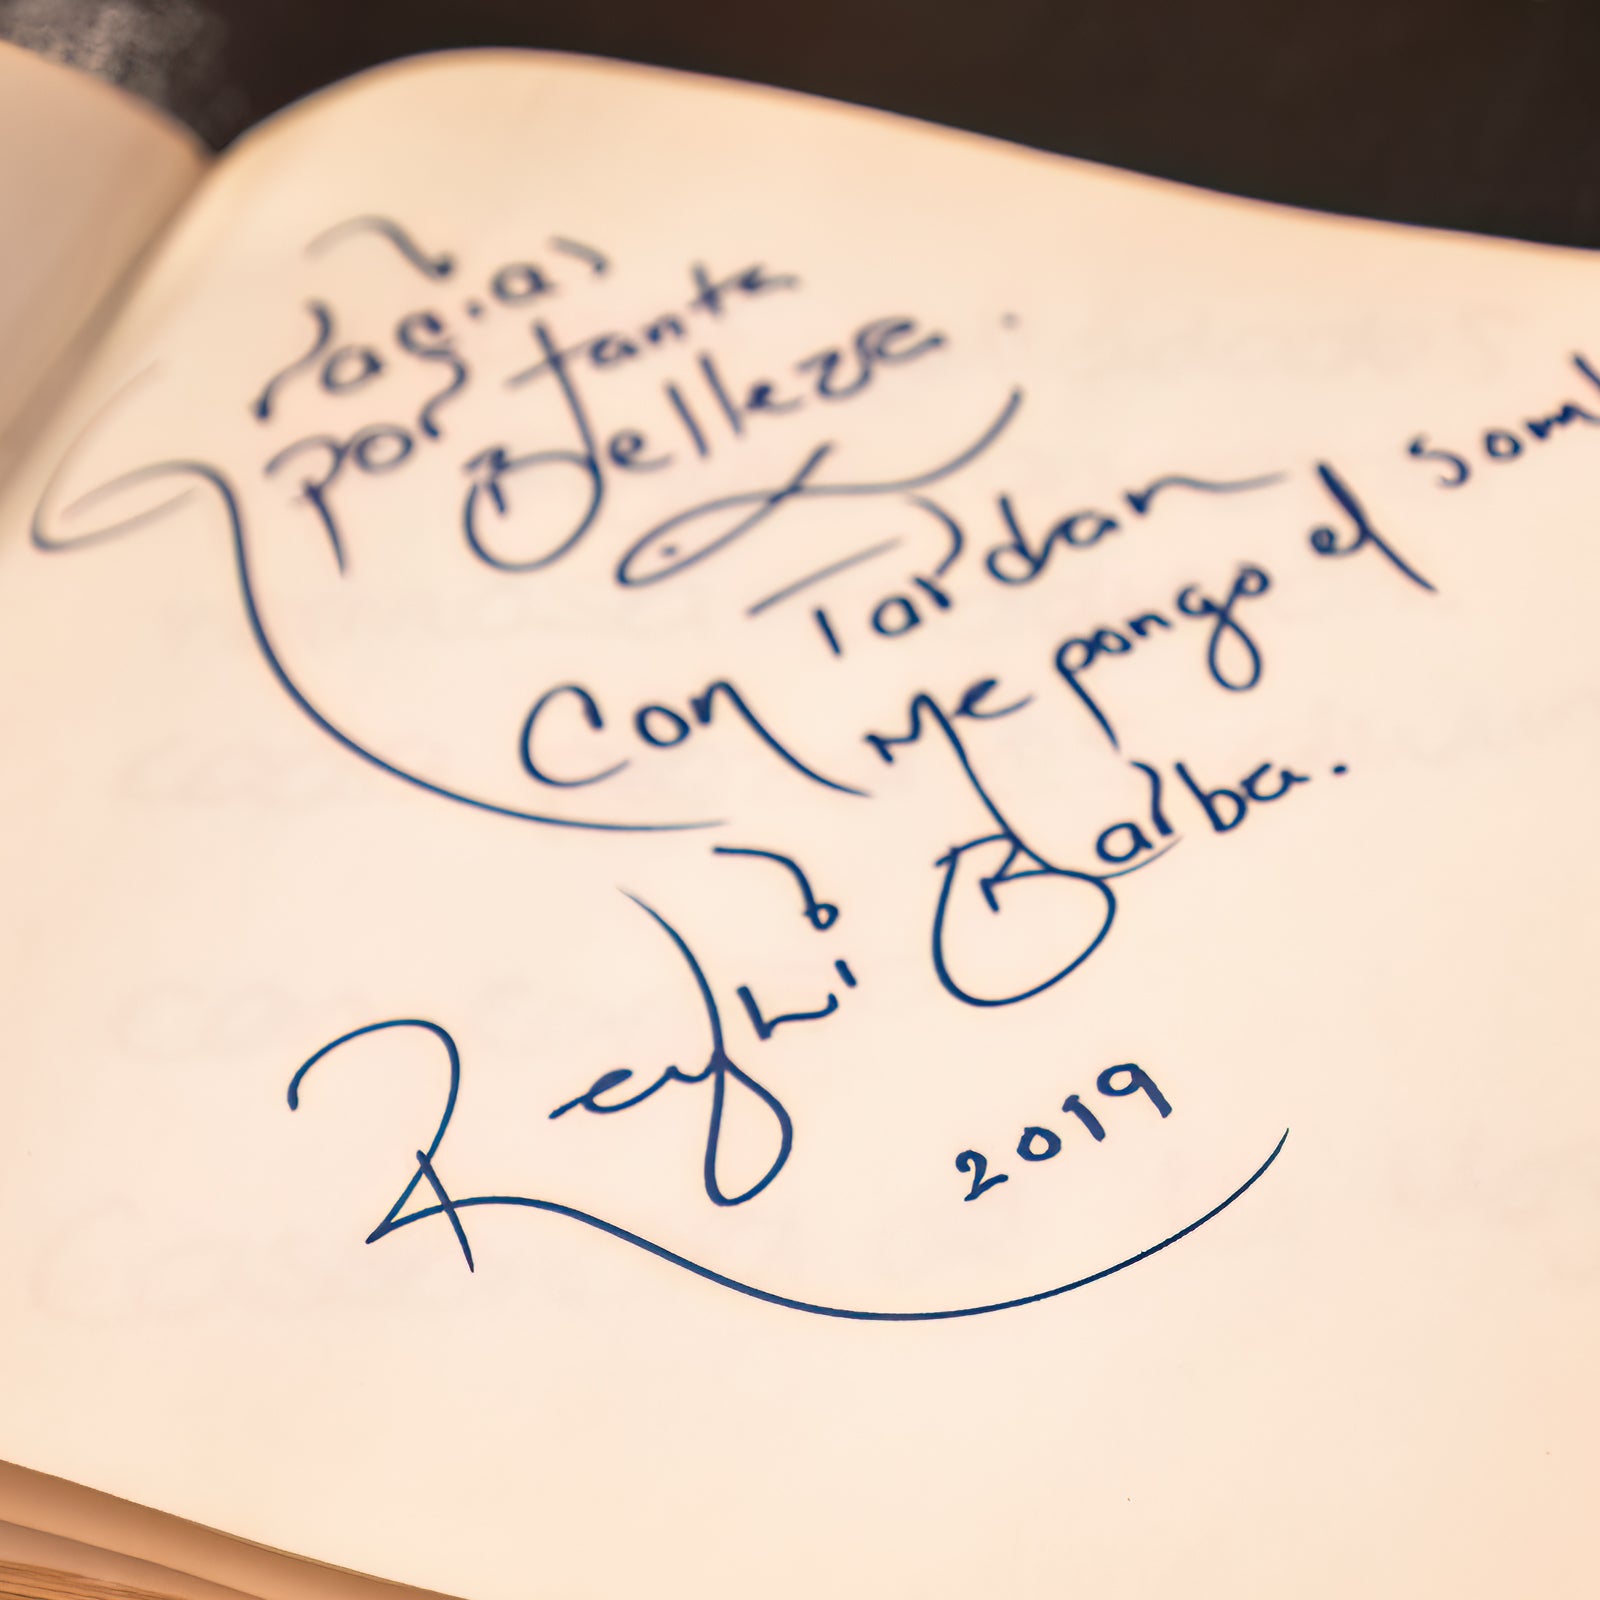 Gracias
por tanta
Belleza.
Con Tardan
Me pongo el somb
Reyhi Barba.
2019